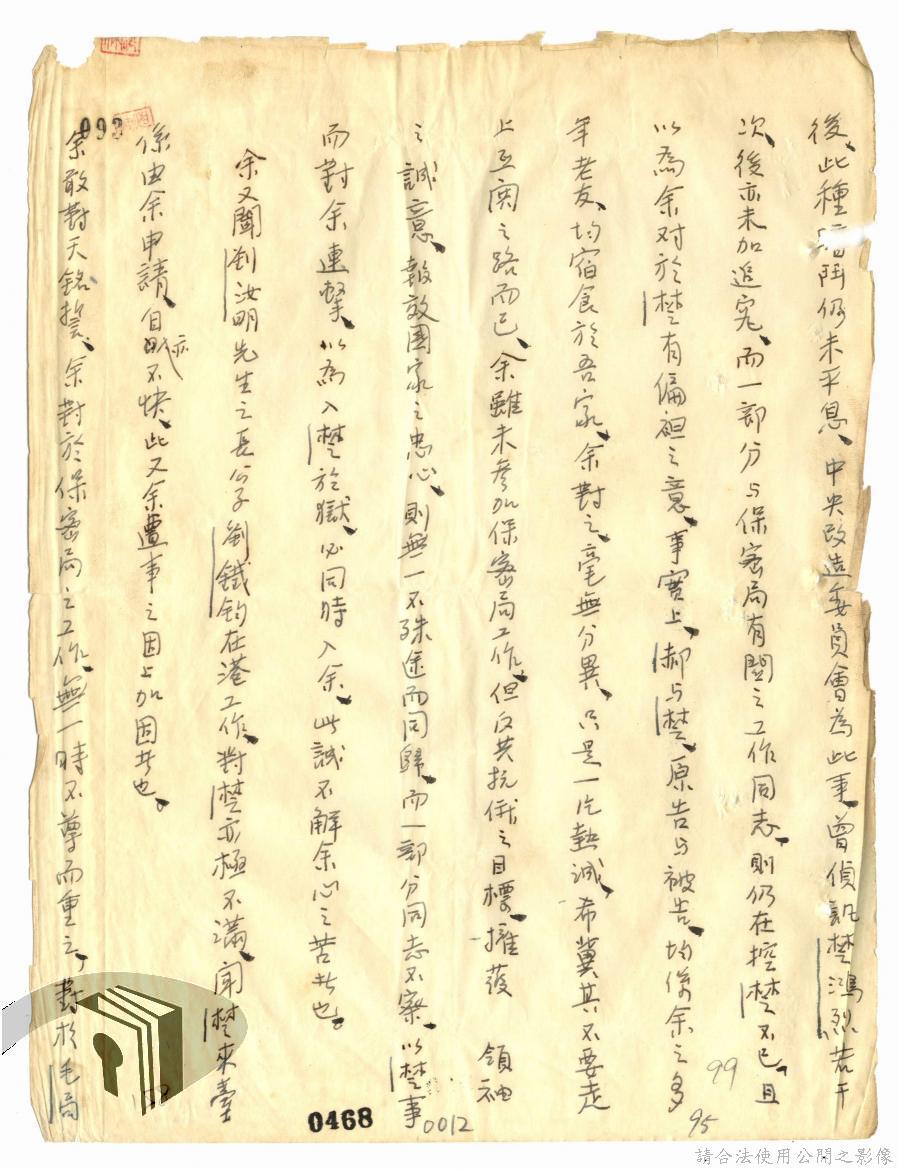 後、此種暗鬥仍未平息、中央改造委員會為此事、曾偵訊楚鴻烈若干
次、後亦未加追究、而一部分与保密局有關之工作同志、則仍在控楚不已、且
以為余对於楚有偏袒之意、事實上、郝与楚、原告与被告、均係余之多
年老友、均宿食於吾家、余對之毫無分異、只是一片熱誠、希冀其不要走
上互鬨之路而已、余雖未參加保密局工作、但反共抗俄之目標、擁護 領袖
之誠意、報效國家之忠心、則無一不殊途而同歸、而一部分同志不察、以楚事
而對余連繫、以為入楚於獄、必同時入余、此誠不解余心之苦者也。
余又聞劉汝明先生之長公子劉鐵鈞在港工作、對楚亦極不滿、聞楚來臺
係由余申請、自亦不快、此又余遭事之因上加因者也。
余敢對天銘誓、余對於保密局之工作、無一時不尊而重之、對於毛局
093
0468
0012
99
95
請合法使用公開之影像